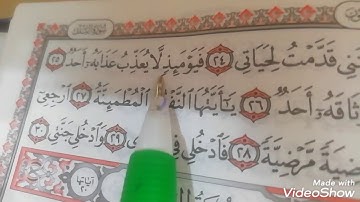 سُورَةُ الفَجْرِ
قَدَّمْتُ لِحَيَاتِي ٢٤ فَيَوْمَئِذٍ لَّا يُعَذِّبُ عَذَابَهُ أَحَدٌ ٢٥
أَحَدٌ ٢٦ يَا أَيَّتُهَا النَّفْسُ الْمُطْمَئِنَّةُ ٢٧ ارْجِعِي
مَّرْضِيَّةً ٢٨ فَادْخُلِي فِي ٢٩ وَادْخُلِي جَنَّتِي ٣٠
آيَاتُهَا ٢٠
Made with
VideoShow